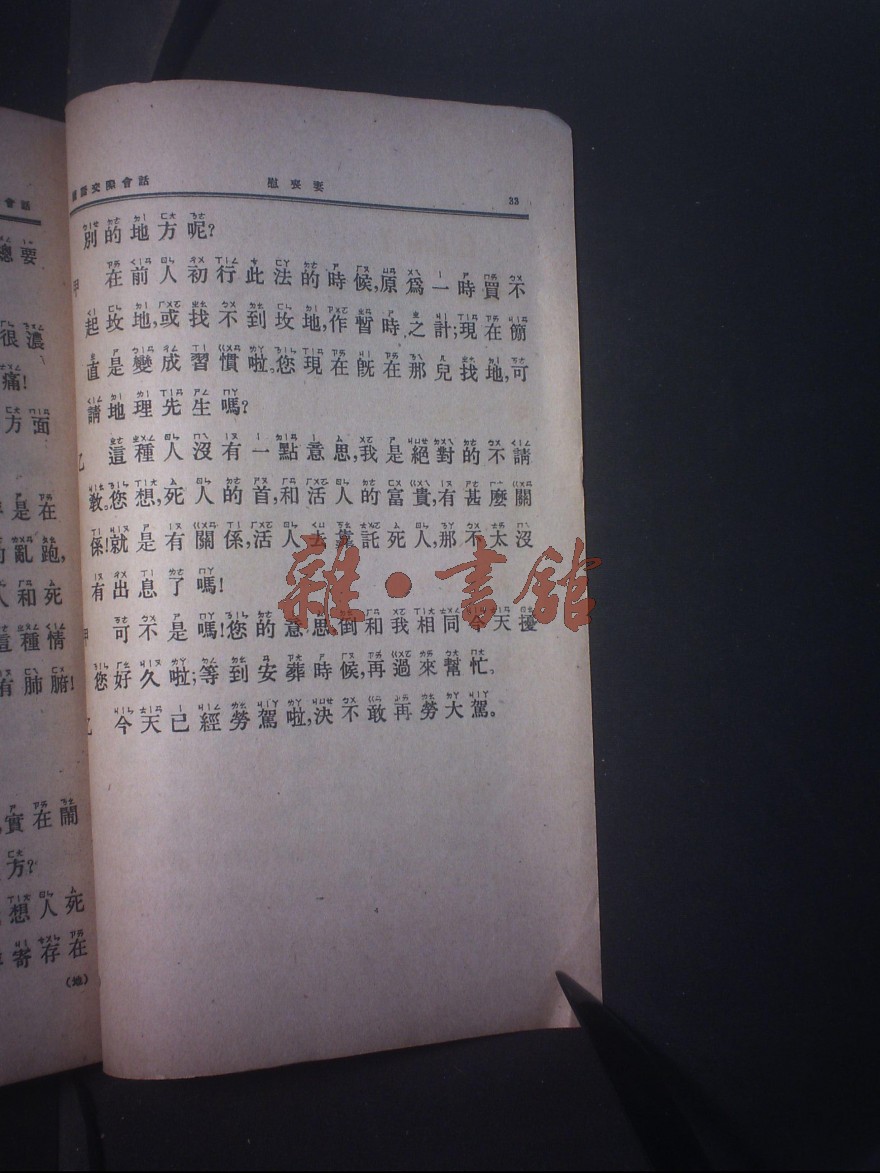 會話
總要
很濃
痛!
方面
是在
亂跑,
人和死
這種情
有肺腑!
實在鬧
方?
想人死
寄存在
(地)
國語交際會話 慰喪妻 33
別的地方呢?
甲 在前人初行此法的時候,原爲一時買不
起坟地,或找不到坟地,作暫時之計;現在簡
直是變成習慣啦。您現在旣在那兒找地,可
請地理先生嗎?
乙 這種人沒有一點意思,我是絕對的不請
敎。您想,死人的首,和活人的富貴,有甚麼關
係!就是有關係,活人去靠託死人,那不太沒
有出息了嗎!
甲 可不是嗎!您的意思倒和我相同今天擾
您好久啦;等到安葬時候,再過來幫忙。
乙 今天已經勞駕啦,決不敢再勞大駕。
雜·書館